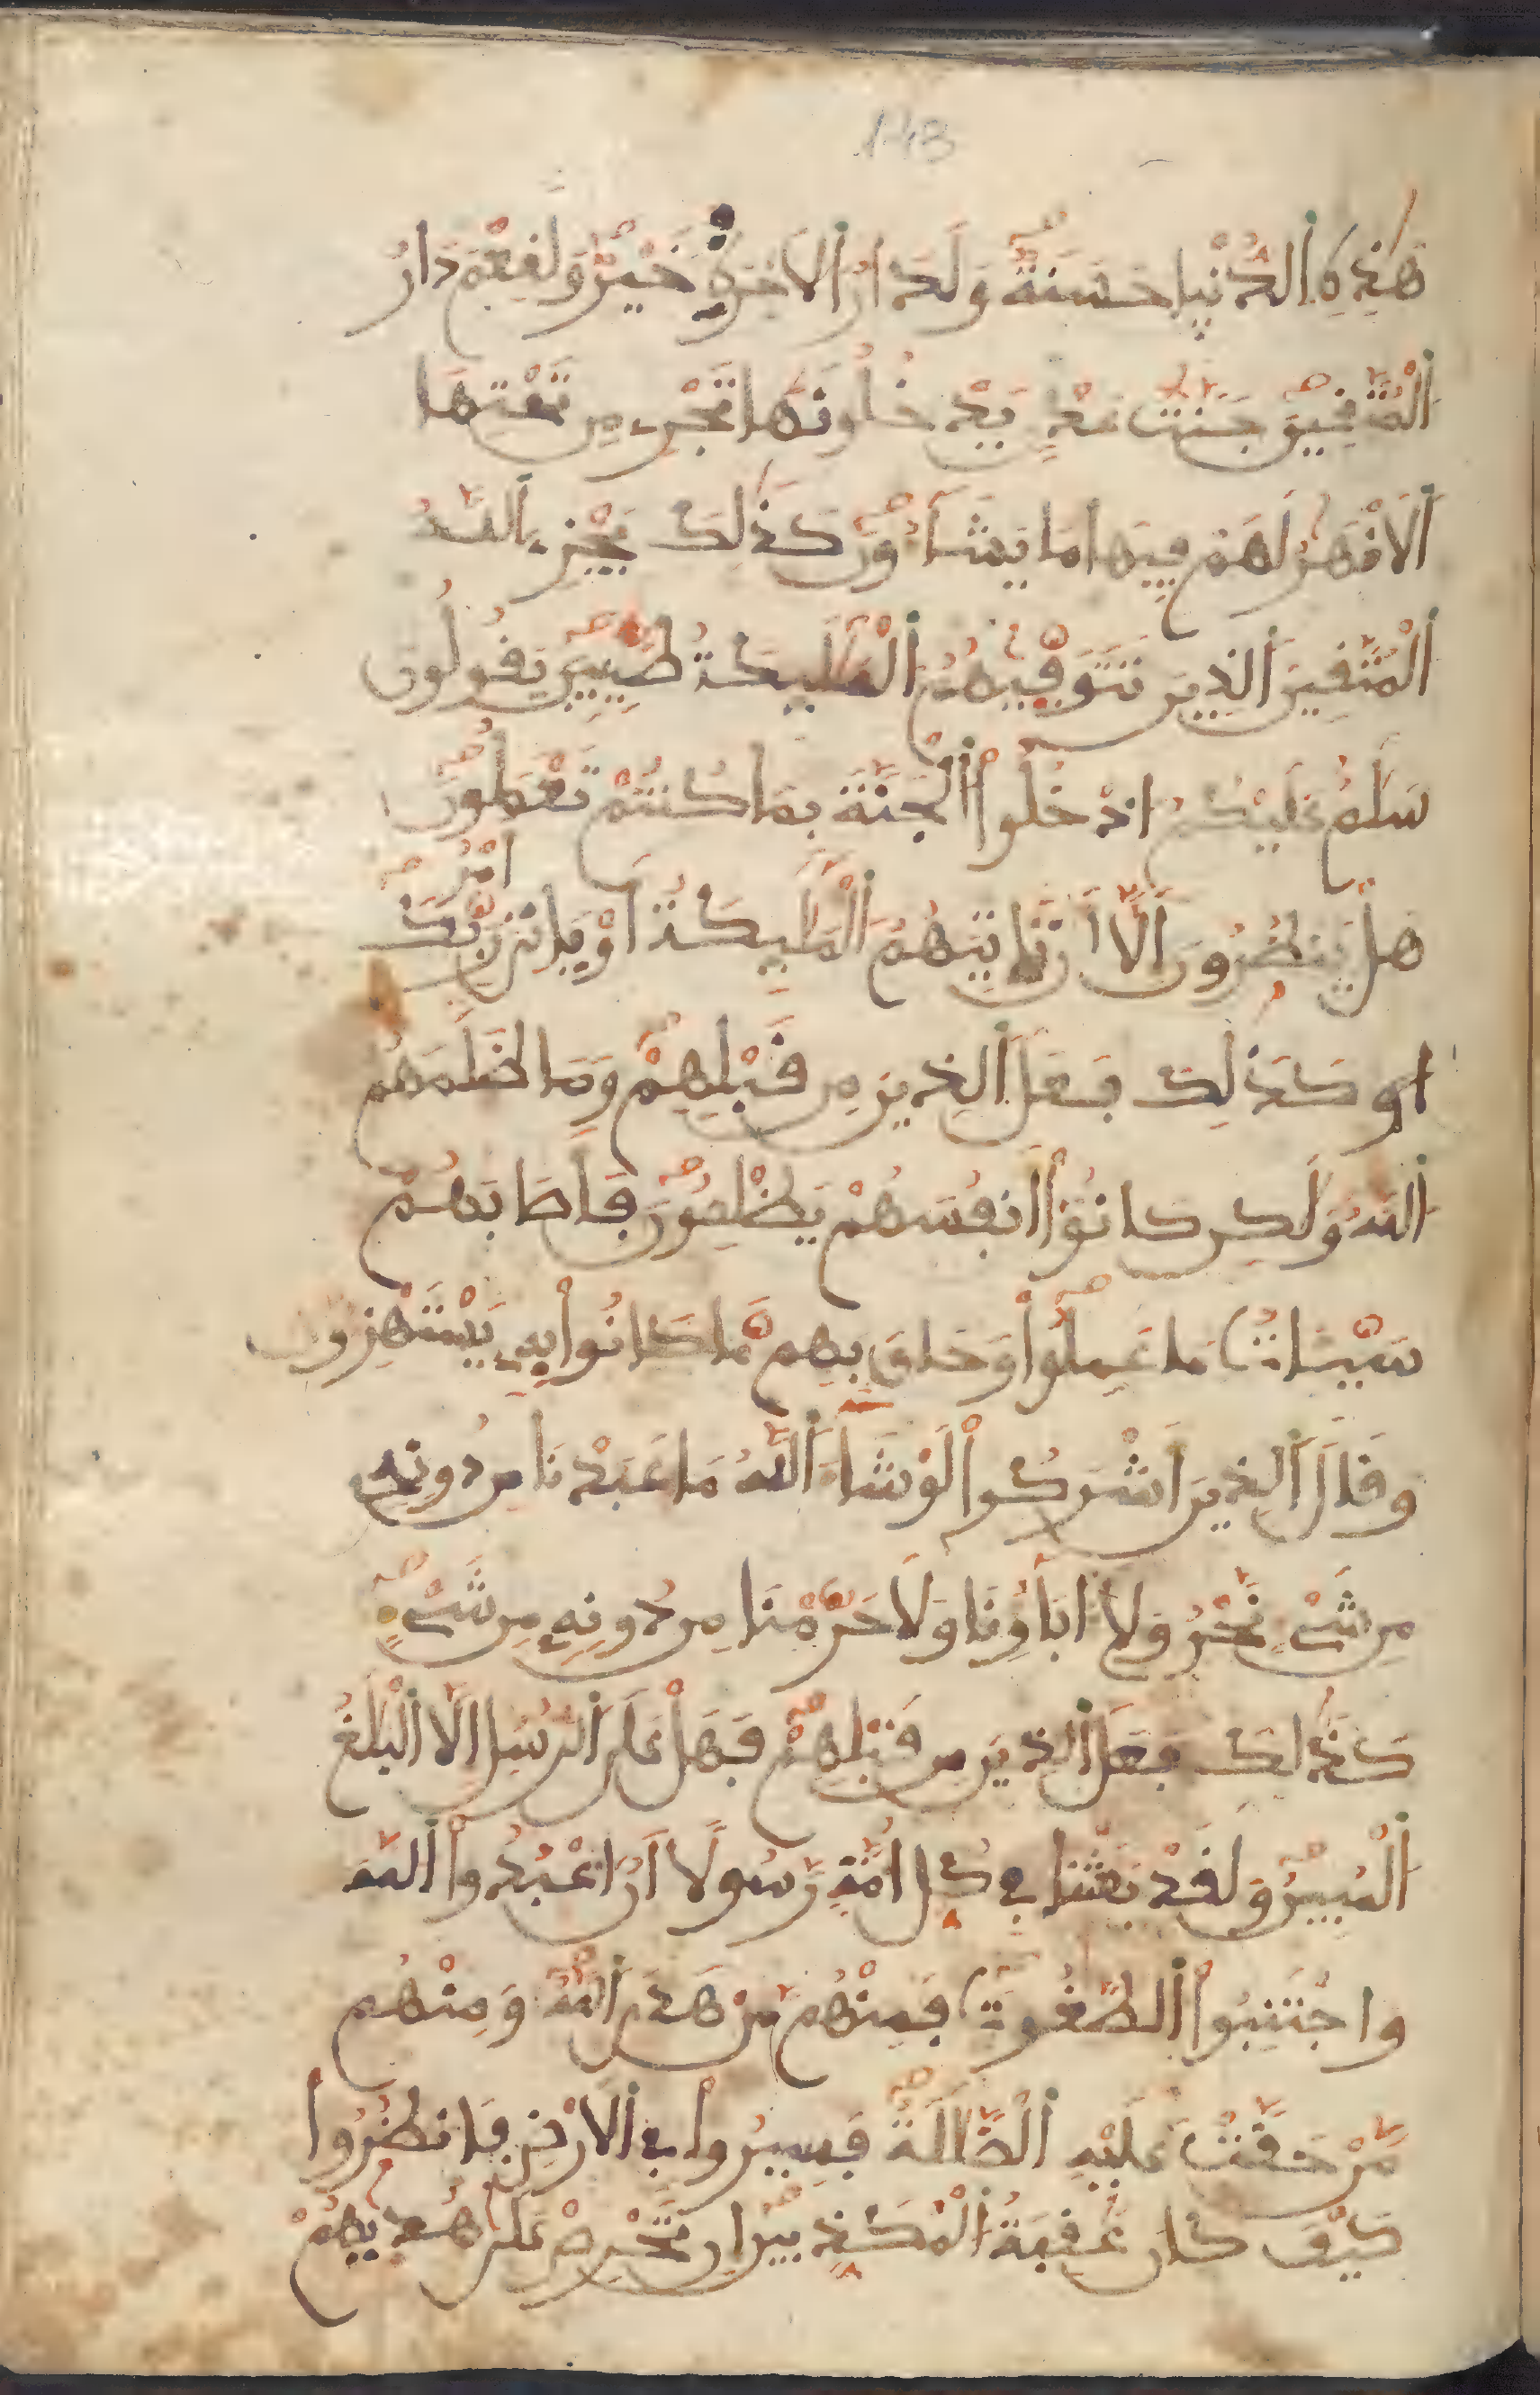 148
هَٰذِهِ اِ۬لدُّنْيٰا حَسَنَةٌ وَلَدَارُ اُ۬لَاخِرَةِ خَيْرٌ وَلَنِعْمَ دَارُ
اُ۬لْمُتَّفِينَ جَنَّٰتُ عَدْنٍ يَدْخُلُونَهَا تَجْرِے مِن تَحْتِهَا
اَ۬لَانْهَٰرُ لَهُمْ فِيهَا مَا يَشَآءُونَ كَذَٰلِكَ يَجْزِے اِ۬للَّهُ
اُ۬لْمُتَّفِينَ اَ۬لذِينَ تَتَوَفّٰيٰهُمُ اُ۬لْمَلَٰٓئِكَةُ طَيِّبِينَ يَفُولُونَ
سَلَٰمٌ عَلَيْكُمُ ادْخُلُوا اُ۬لْجَنَّةَ بِمَا كُنتُمْ تَعْمَلُونَ
هَلْ يَنظُرُونَ إِلَّا أَن تَاتِيَهُمُ اُ۬لْمَلَٰٓئِكَةُ أَوْ يَاتِيَ رَبُّكَ
امْرُ
كَذَٰلِكَ فَعَلَ اَ۬لذِينَ مِن فَبْلِهِمْ وَمَا ظَلَمَهُمُ
اُ۬للَّهُ وَلَٰكِن كَانُوٓا أَنفُسَهُمْ يَظْلِمُونَ فَأَصَابَهُمْ
سَيِّـَٔاتُ مَا عَمِلُوا وَحَاقَ بِهِم مَّا كَانُوا بِهِۦ يَسْتَهْزِءُونَ
وَفَالَ اَ۬لذِينَ أَشْرَكُوا لَوْ شَآءَ اَ۬للَّهُ مَا عَبَدْنَا مِن دُونِهِۦ
مِن شَےْءٍ نَّحْنُ وَلَآ ءَابَآؤُنَا وَلَا حَرَّمْنَا مِن دُونِهِۦ مِن شَےْءٍ
كَذَٰلِكَ فَعَلَ اَ۬لذِينَ مِن فَبْلِهِمْ فَهَلْ عَلَى اَ۬لرُّسُلِ إِلَّا اَ۬لْبَلَٰغُ
اُ۬لْمُبِينُ وَلَفَدْ بَعَثْنَا فِے كُلِّ أُمَّةٍ رَّسُولًا أَنُ اعْبُدُوا اُ۬للَّهَ
وَاجْتَنِبُوا اُ۬لطَّٰغُوتَ فَمِنْهُم مَّنْ هَدَى اَ۬للَّهُ وَمِنْهُم
مَّنْ حَفَّتْ عَلَيْهِ اِ۬لضَّلَٰلَةُ فَسِيرُوا فِے اِ۬لَارْضِ فَانظُرُوا
كَيْفَ كَانَ عَٰفِبَةُ اُ۬لْمُكَذِّبِينَ إِن تَحْرِصْ عَلَىٰ هُدٰيٰهُمْ